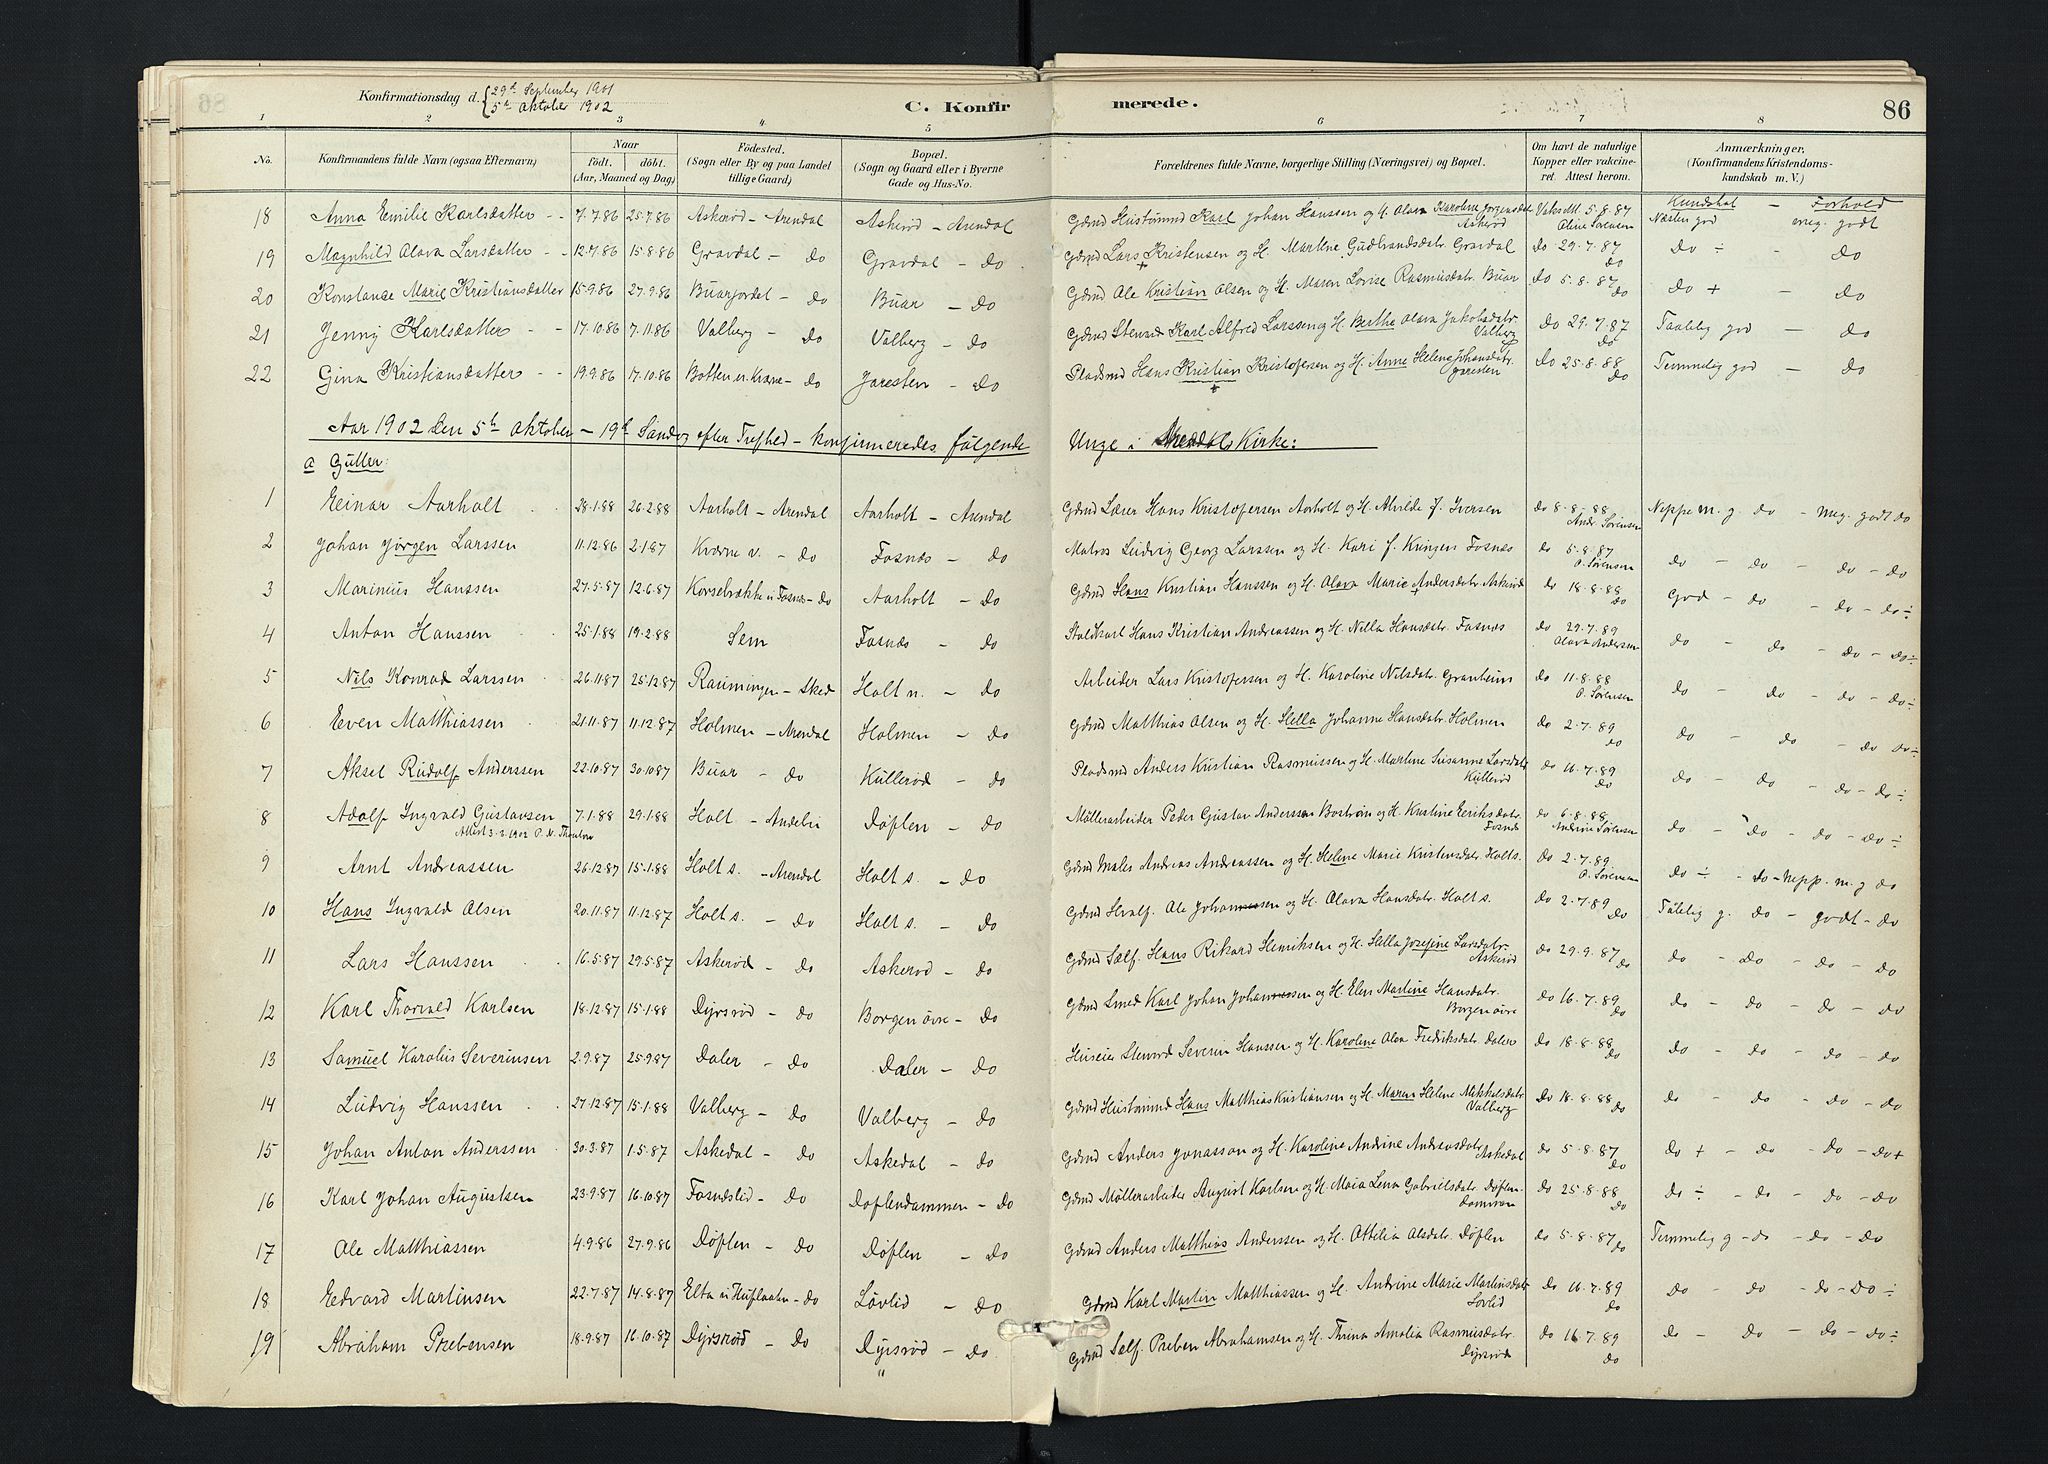 Konfirmationsdag d. 29de September 1901
5te Oktober 1902
C. Konfirmerede.
86
1 2 3 4 5 6 7 8
No. Konfirmandens fulde Navn (ogsaa Efternavn) Naar født. døbt. (Aar, Maaned og Dag) Fødested. (Sogn eller By og paa Landet tillige Gaard) Bopæl. (Sogn og Gaard eller i Byerne Gade og Hus-No. Forældrenes fulde Navne, borgerlige Stilling (Næringsvei) og Bopæl. Om havt de naturlige Kopper eller vaccineret. Attest herom. Anmærkninger. (Konfirmandens Kristendomskundskab m. V.)
Kundskab – Forhold
18 Anna Emilie Karlsdatter 7.7.86 25.7.86 Askerød – Arendal Askerød – Arendal Gdmd Hustømmd Karl Johan Hanssen og H. Olava Karoline Jørgensdat. Askerød 5.8.87 Oline Sørensen Næsten god meg. godt
19 Magnhild Olava Larsdatter 12.7.86 15.8.86 Gravdal – do Gravdal – do Gdmd Lars Kristensen og H. Marthe Gudbrandsdatr. Gravdal do 29.7.87 do do ÷ – do
20 Konstanse Marie Kristiansdatter 15.9.86 27.9.86 Buarjordet – do Buar – do Gdmd Ole Kristian Olsen og H. Maren Lovise Rasmusdatr. Buar do 5.8.87 do do + – do
21 Jenny Karlsdatter 17.10.86 7.11.86 Valberg – do Valberg – do Gdmd Stenard Karl Alfred Larssen og H. Berthe Olava Jakobsdatr. Valberg do 29.7.87 do Taalelig god – do
22 Gina Kristiansdatter 19.9.86 17.10.86 Botten – do Jaresten – do Pladsmd Hans Kristian Kristofersen og H. Anne Helene Johansdatr. Jaresten do 25.8.88 do Temmelig god – do
Aar 1902 den 5te Oktober – 19de Søndag efter Trefhed – konfirmeredes følgende Unge i Arendals Kirke:
a Gutter:
1 Einar Aarholt 28.1.88 26.2.88 Aarholt – Arendal Aarholt – Arendal Gdmd Lærer Hans Kristofersen Aarholt og H. Alvilde f. Iversen do 8.8.88 Andr. Sørensen Neppe m. g. do – Meg. godt do
2 Johan Jørgen Larssen 11.12.86 2.1.87 Kværne v. – do Fosnæs – do Matros Ludvig Georg Larssen og H. Kari f. Kringen Fosnæs do 5.8.87 O. Sørensen do – do – do – do
3 Marinius Hanssen 27.5.87 12.6.87 Korsebrække u. Fosnæs – do Aarholt – do Gdmd Hans Kristian Hanssen og H. Olava Marie Andersdatr. Askerød do 18.8.88 do God – do – do – do ÷
4 Anton Hanssen 25.1.88 19.2.88 Sem Fosnæs – do Staldkarl Hans Kristian Andreassen og H. Nilla Hansdatr. Fosnæs do 29.7.89 Olava Andersen do – do – do – do ÷
5 Nils Konrad Larssen 26.11.87 25.12.87 Rauningen – Sked Holt n. – do Arbeider Lars Kristofersen og H. Karoline Nilsdatr. Granheim do 11.8.88 O. Sørensen do – do – do – do ÷
6 Even Matthiassen 21.11.87 11.12.87 Holmen – Arendal Holmen – do Gdmd Matthias Olsen og H. Hella Johanne Hansdatr. Holmen do 2.7.89 do do – do – do do ÷
7 Aksel Rudolf Anderssen 22.10.87 30.10.87 Buar – do Kullerød – do Pladsmd Anders Kristian Rasmussen og H. Martine Susanne Larsdatr. Kullerød do 16.7.89 do do – do – do – do ÷
8 Adolf Ingvald Gustavsen 7.1.88 29.1.88 Holt – Andebu Døflen – do Møllerarbeider Peder Gustav Anderssen Bostrøm og H. Kristine Eeriksdatr. Fosnæs do 6.8.88 Andrine Sørensen do – do – do – do ÷
Attest 3.2.1902
9 Arnt Andreassen 26.12.87 15.1.88 Holt s. – Arendal Holt s. – do Gdmd Maler Andreas Andreassen og H. Helene Marie Kristensdatr. Holt s. do 2.7.89 O. Sørensen do ÷ – do – nepp. m. g do
10 Hans Ingvald Olsen 20.11.87 11.12.87 Holt s. – do Holt s. – do Gdmd Hvalf. Ole Johannessen og H. Olava Hansdatr. Holt s. do 2.7.89 do Tålelig g. do – godt – do
11 Lars Hanssen 16.5.87 29.5.87 Askerød – do Askerød – do Gdmd Sælf. Hans Rikard Henriksen og H. Hella Josefine Larsdatr. Askerød do 29.9.87 do do – do – do – do
12 Karl Thorvald Karlsen 18.12.87 15.1.88 Dyrsrød – do Borgen øvre – do Gdmd Smed Karl Johan Johannessen og H. Elen Martine Hansdatr. Borgen øvre do 16.7.89 do do – do – do – do
13 Samuel Karolius Severinsen 2.9.87 25.9.87 Daler – do Daler – do Huseier Stenard Severin Hanssen og H. Karoline Olava Fredriksdatr. Daler do 18.8.88 do do – do – do – do
14 Ludvig Hanssen 27.12.87 15.1.88 Valberg – do Valberg – do Gdmd Hustømmd Hans Matthias Kristiansen og H. Maren Helene Mikkelsdatr Valberg do 18.8.88 do do – do – do – do
15 Johan Anton Anderssen 30.3.87 1.5.87 Askedal – do Askedal – do Gdmd Anders Jonassøn og H. Karoline Andrine Andreasdatr. Askedal do 5.8.87 do do + – do – do – do +
16 Karl Johan Augustsen 23.9.87 16.10.87 Fosnæslid – do Døflendammen – do Gdmd Møllerarbeider August Karlsen og H. Maia Lena Gabrielsdatr. Døflen. do 25.8.88 do do ÷ – do – do – do
17 Ole Matthiassen 4.9.86 27.9.86 Døflen – do Døflen – do Gdmd Anders Matthias Anderssen og H. Ottilia Olsdatr. Døflen do 5.8.87 do Temmelig g – do – do – do
18 Edvard Martinsen 22.7.87 14.8.87 Elta – do Løvlid – do Gdmd Karl Martin Matthiassen og H. Andrine Marie Martinsdatr Løvlid do 16.7.89 do do – do – do – do ÷
19 Abraham Prebensen 18.9.87 16.10.87 Dyrsrød – do Dyrsrød – do Gdmd Sælf. Preben Abrahamsen og H. Thrina Amalia Rasmusdatr. Dyrsrød do 16.7.89 do do – do – do – do ÷